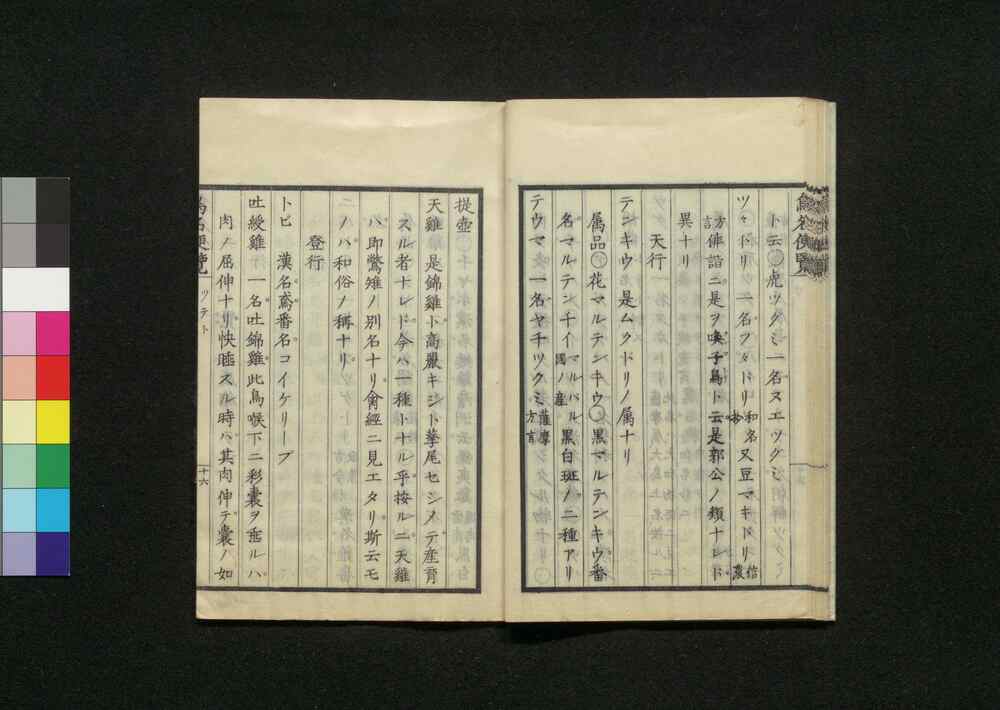 ト云〇虎ツグミ一名ヌエツグミ
ツヽドリ 一名フタドリ和名抄又豆マキドリ信濃
方言俳諧ニ是ヲ喚子鳥ト云是郭公ノ類ナレド
異ナリ
天行
テンキウ 是ムクドリノ属ナリ
属品〇花マルテンキウ〇黒マルテンキウ番
名マルテンチイマルバル國ノ産黒白斑ノ二種アリ
テウマ 一名ヤチツクミ薩摩方言
提壺
天雞 是錦雞ト高麗キジト孳尾セシメテ産育
スル者ナレド今ハ一種トナル乎按ルニ天雞
ハ即鷩雉ノ別名ナリ禽經ニ見エタリ斯云モ
ノハ和俗ノ稱ナリ
登行
トビ 漢名鳶番名コイケリーブ
吐綬雞 一名吐錦雞此鳥喉下ニ彩囊ヲ垂ルハ
肉ノ屈伸ナリ快睡スル時ハ其肉伸テ囊ノ如
鳥名便覽
ツテト
十六